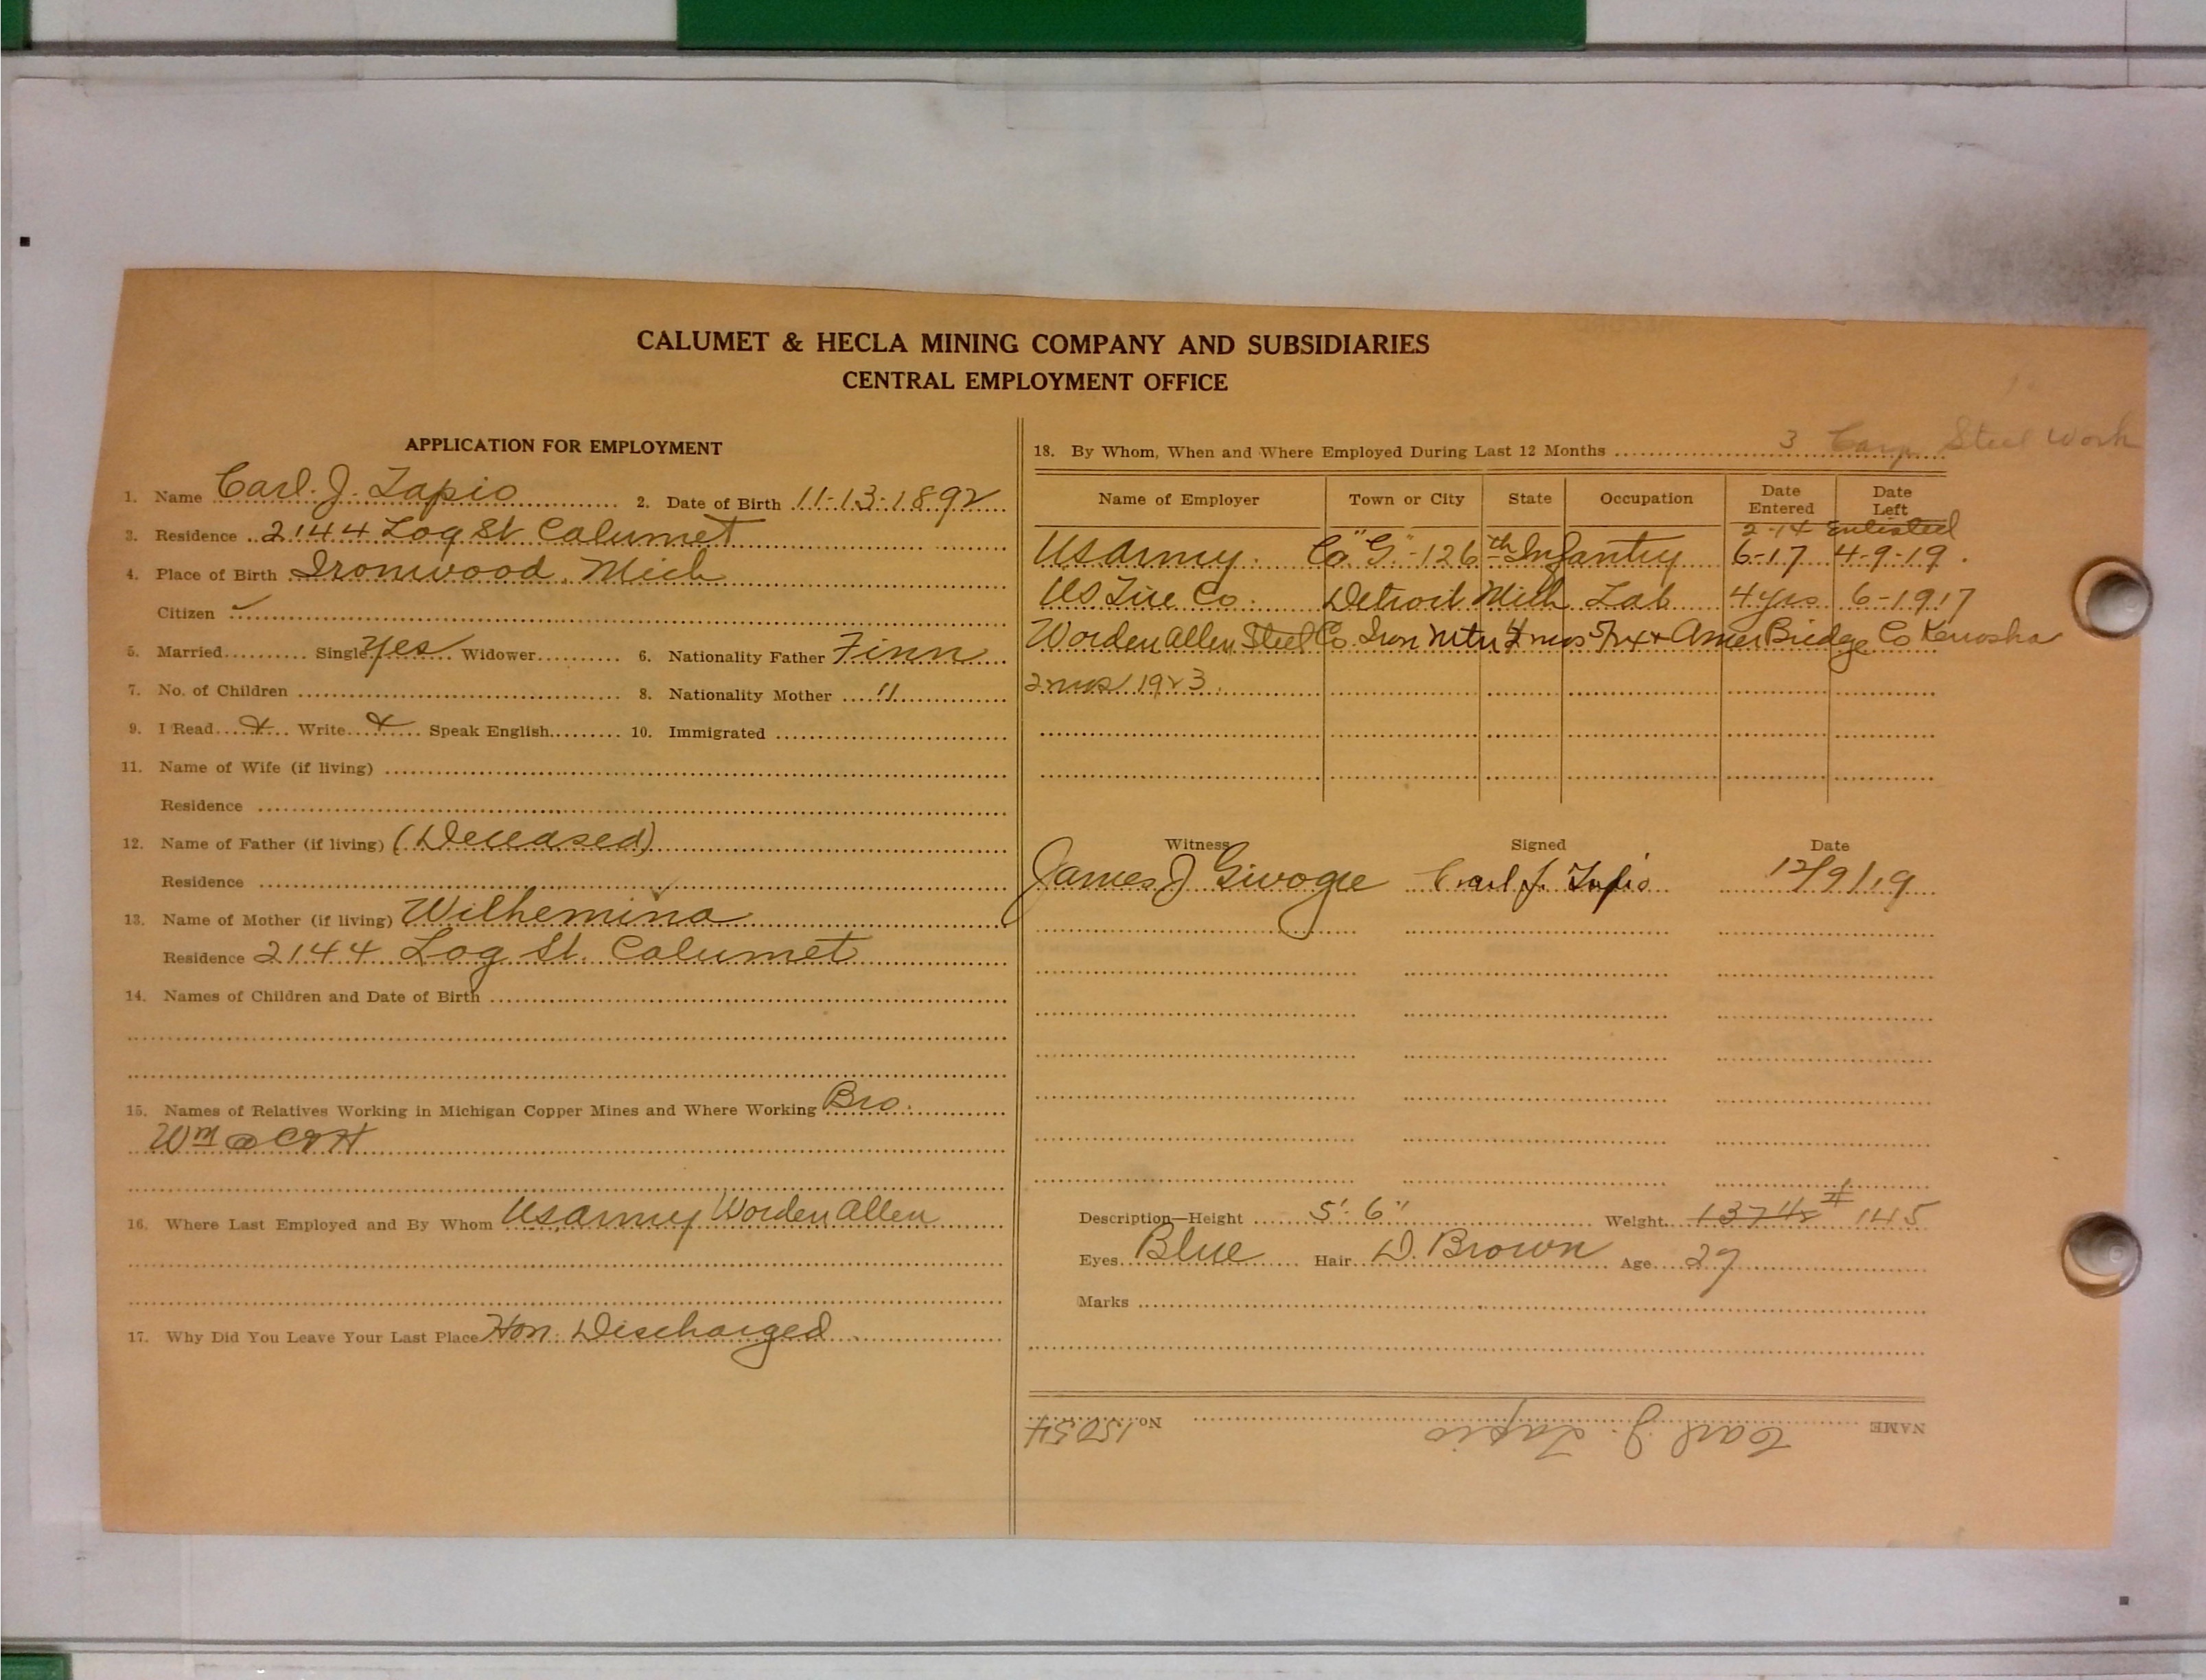 CALUMET & HECLA MINING COMPANY AND SUBSIDIARIES
CENTRAL EMPLOYMENT OFFICE
APPLICATION FOR EMPLOYMENT
1. Name Carl. J. Tapio 2. Date of Birth 11-13-1892
3. Residence 2144 Log St Calumet
4. Place of Birth Ironwood, Mich
Citizen ✓
5. Married Single yes Widower 6. Nationality Father Finn
7. No. of Children 8. Nationality Mother "
9. I Read x Write x Speak English 10. Immigrated
11. Name of Wife (if living)
Residence
12. Name of Father (if living) (Deceased)
Residence
13. Name of Mother (if living) Wilhemina
Residence 2144 Log St. Calumet
14. Names of Children and Date of Birth
15. Names of Relatives Working in Michigan Copper Mines and Where Working Bro.
Wm @ C&H
16. Where Last Employed and By Whom US Army Worden Allen
17. Why Did You Leave Your Last Place Hon. Discharged
3 Carp. Steel Work
18. By Whom, When and Where Employed During Last 12 Months
Name of Employer Town or City State Occupation Date Entered Date Left
2-14 Enlisted
US Army. Co "G"-126th Infantry 6-17 4-9-19.
US Tire Co. Detroit Mich Lab 4 yrs 6-1917
Worden Allen Steel Co. Iron Mtn 4 mos Amer Bridge Co Kenosha
2 mos 1923.
Witness Signed Date
James J Carl J. Tapio 12/9/19
Description—Height 5' 6" Weight 137 1/2 # 145
Eyes Blue Hair D. Brown Age 27
Marks
NAME Carl J. Tapio No. 15054